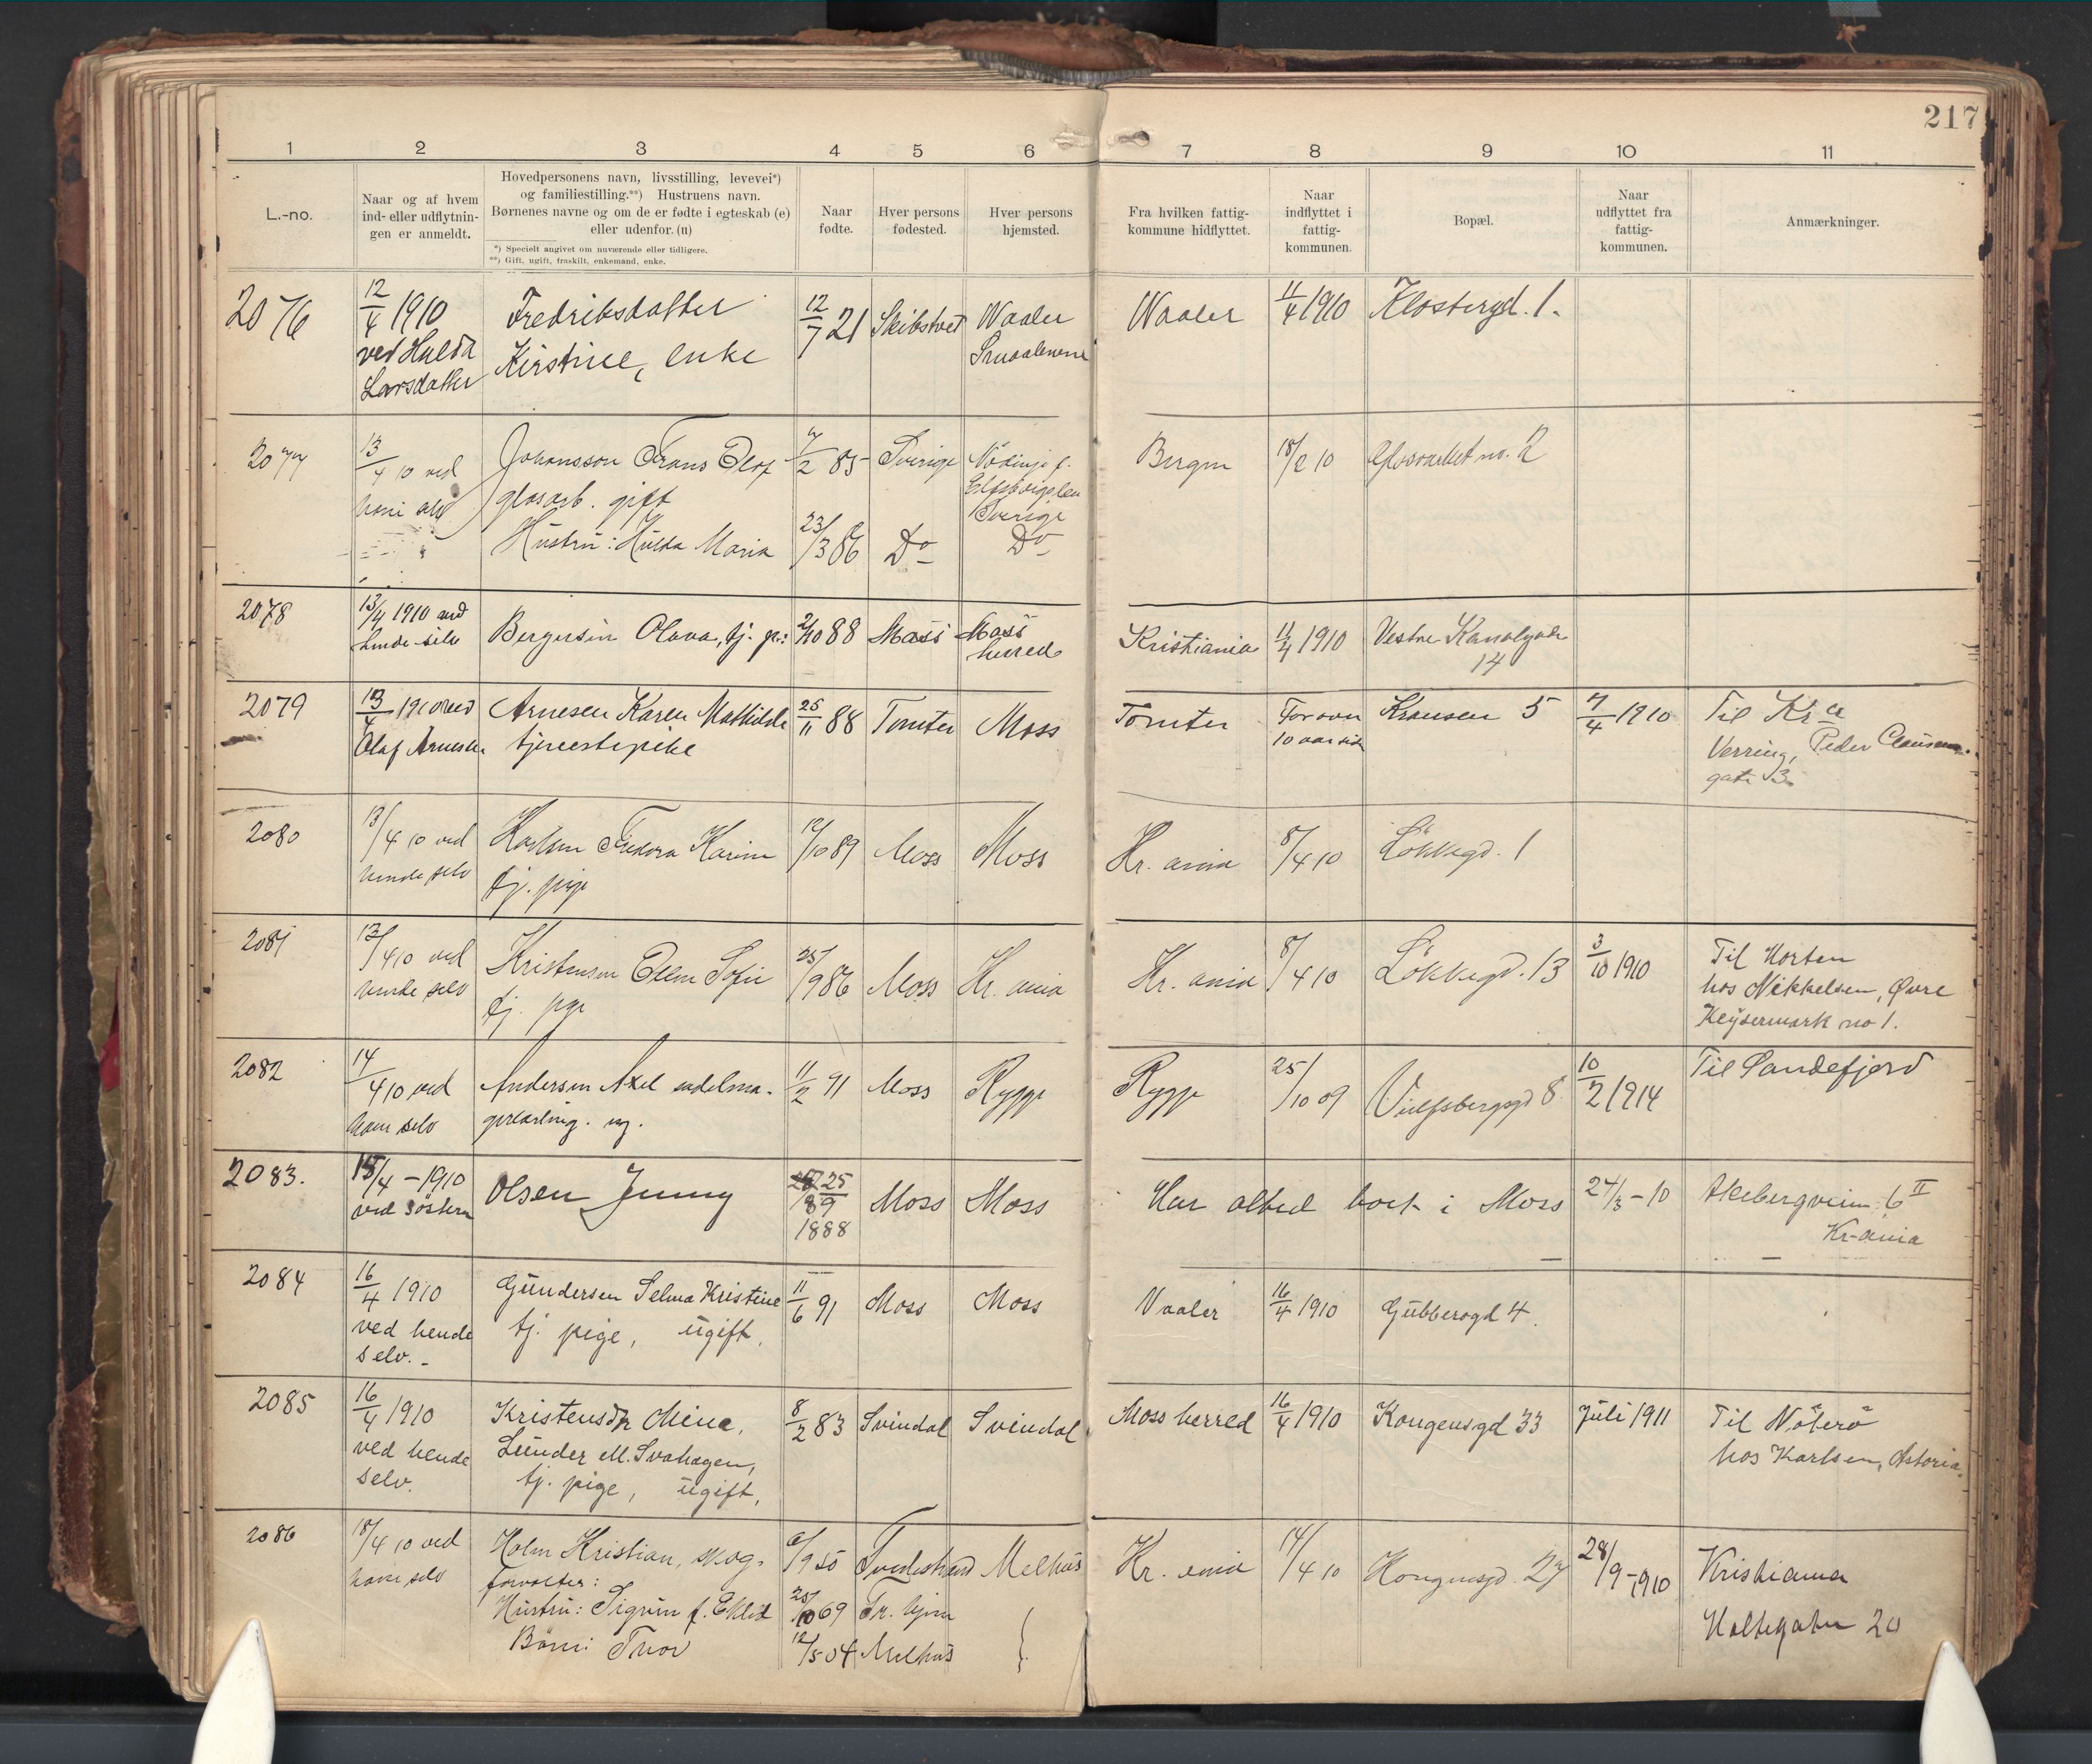 217
1 2 3 4 5 6 7 8 9 10 11
L.-no.
Naar og af hvem
ind- eller udflytnin-
gen er anmeldt.
Hovedpersonens navn, livsstilling, levevei*)
og familiestilling.**) Hustruens navn.
Børnenes navne og om de er fødte i egteskab (e)
eller udenfor. (u)
*) Specielt angivet om nuværende eller tidligere.
**) Gift, ugift, fraskilt, enkemand, enke.
Naar
fødte.
Hver persons
fødested.
Hver persons
hjemsted.
Fra hvilken fattig-
kommune hidflyttet.
Naar
indflyttet i
fattig-
kommunen.
Bopæl.
Naar
udflyttet fra
fattig-
kommunen.
Anmærkninger.
2076
12/4 1910
ved Hulda
Larsdatter
Fredriksdatter
Kirstine, enke
12/7 21
Skibstvet
Waaler
Smaalenene
Waaler
11/4 1910
Klostergd. 1.
2077
13/4 10 ved
Johansson Frans Olof
glasarb. gift
Hustru: Hulda Maria
7/2 85
23/3 86
Sverige
Do
Elfsborgs len
Sverige
Do
Bergen
18/2 10
Glasverket no. 2
2078
13/4 1910 ved
hende selv
Bergersen Olava, tj. p.:
2/10 88
Moss
Moss
herred
Kristiania
11/4 1910
Vestre Kanalgade
14
2079
13/4 1910 ved
Olaf Arnesen
Arnesen Karen Mathilde
tjenestepike
25/11 88
Tomter
Moss
Tomter
For over
10 aar sid
Kransen 5
7/4 1910
Til Kra
Verring, Peder Clausens.
gate 3
2080
13/4 10 ved
hende selv
Karlsen Fredora Karine
tj. pige
12/10 89
Moss
Moss
Kr. ania
8/4 10
Løkkegd. 1
2081
13/4 10 ved
hende selv
Kristensen Ellen Sofie
tj. pge
25/9 86
Moss
Kr. ania
Kr. ania
8/4 10
Løkkegd. 13
3/10 1910
Til Horten
hos Mikkelsen, Øvre
Keysermark no 1.
2082
14/4 10 ved
ham selv
Andersen Axel sadelma-
gerlærling. ug.
11/2 91
Moss
Rygge
Rygge
25/10 09
Vulfsbergsgd 8
10/2 1914
Til Sandefjord
2083.
15/4 - 1910
ved søstern
Olsen Jenny
25/9
1888
Moss
Moss
Har altid boet i Moss
24/3 - 10
Akebergveien 6 II
Kr-ania
2084
16/4 1910
ved hende
selv. -
Gundersen Selma Kristine
tj. pige, ugift.
11/6 91
Moss
Moss
Vaaler
16/4 1910
Gubberogd 4.
2085
16/4 1910
ved hende
selv.
Kristensdr Mina,
Lunder M. Svahagen,
tj. pige, ugift.
8/2 83
Svindal
Svindal
Moss herred
16/4 1910
Kongensgd 33
Juli 1911
Til Nøterø
hos Karlsen, Astoria.
2086
18/4 10 ved
ham selv
Holm Kristian, skog-
forvalter:
Hustru: Sigrun f. Eklid
Børn: Thor
6/9 55
25/10 69
12/5 04
Tvedestrand
Tr. hjem
Melhus
Melhus
Kr. ania
14/4 10
Kongensgd. 27
28/9 - 1910
Kristiania
Holtegaten 20